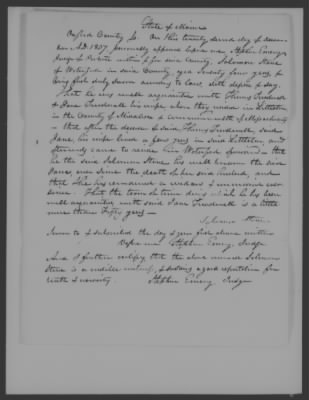 State of Maine
Oxford County Ss. On this twenty second day of decem
ber A.D. 1837, personally appeared before me Stephen Emery
Judge of Probate within & for said County, Solomon Stone
of Waterford in said County, aged Seventy four years, &
being first duly sworn according to law, doth depose & say,
That he was well acquainted with
& Jane his wife when they resided in Littleton
in the County of Middlesex & commonwealth of Massachusetts
– that after the decease of said said
Jane, his wife lived a few years in said Littleton, and
afterwards came to reside in Waterford aforesaid – that
he the said Solomon Stone has well known the said
Jane, ever since the death of her said husband, and
that she has remained a widow & unmarried ever
since – That the time during which he has been
well acquainted with said Jane is a little
more than fifty years –
Solomon Stone
Sworn to & subscribed the day & year first above written
Before me Stephen Emery, Judge
And I further certify that the above named Solomon
Stone is a credible witness, & sustains a good reputation for
truth & veracity. Stephen Emery Judge